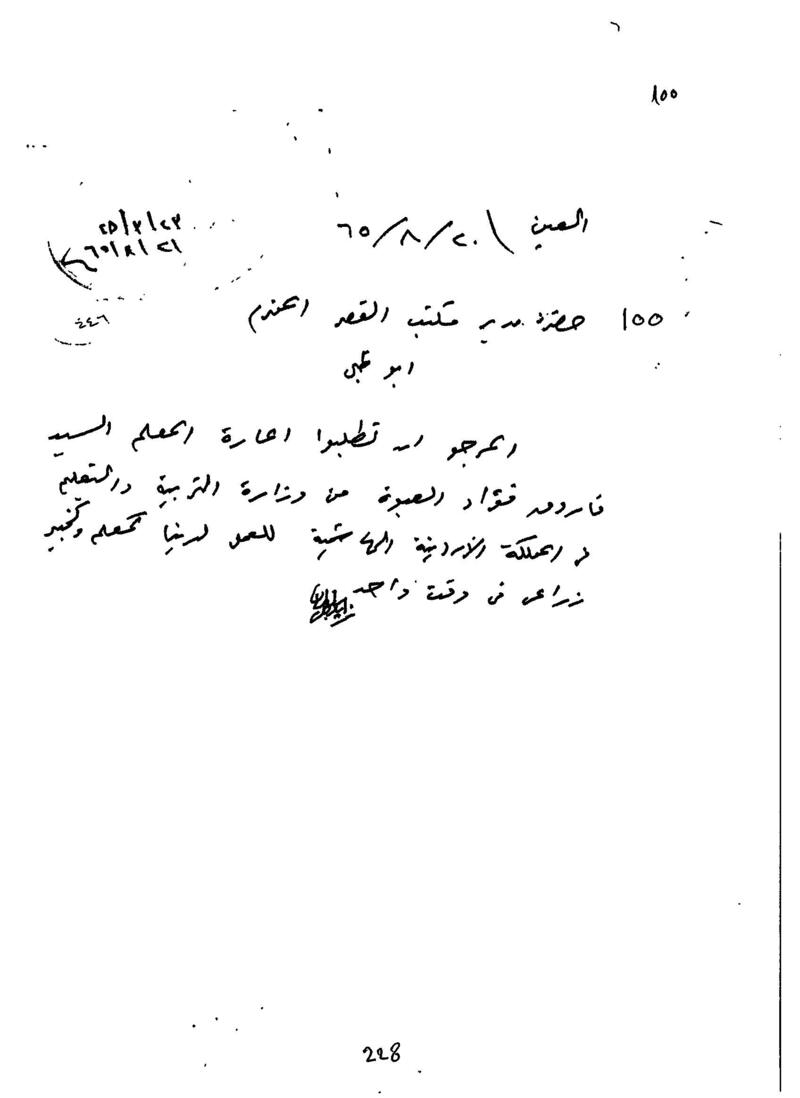 100
العين ٢٠/٨/٦٥
٦٥/٨/٢١
٤٤٦
100 حضرة مدير مكتب القصر المحترم
ابو ظبي
المرجو ان تطلبوا اعارة المعلم السيد
فاروق فؤاد العبوة من وزارة التربية والتعليم
في المملكة الاردنية الهاشمية للعمل لدينا كمعلم وكخبير
زراعي في وقت واحد
228